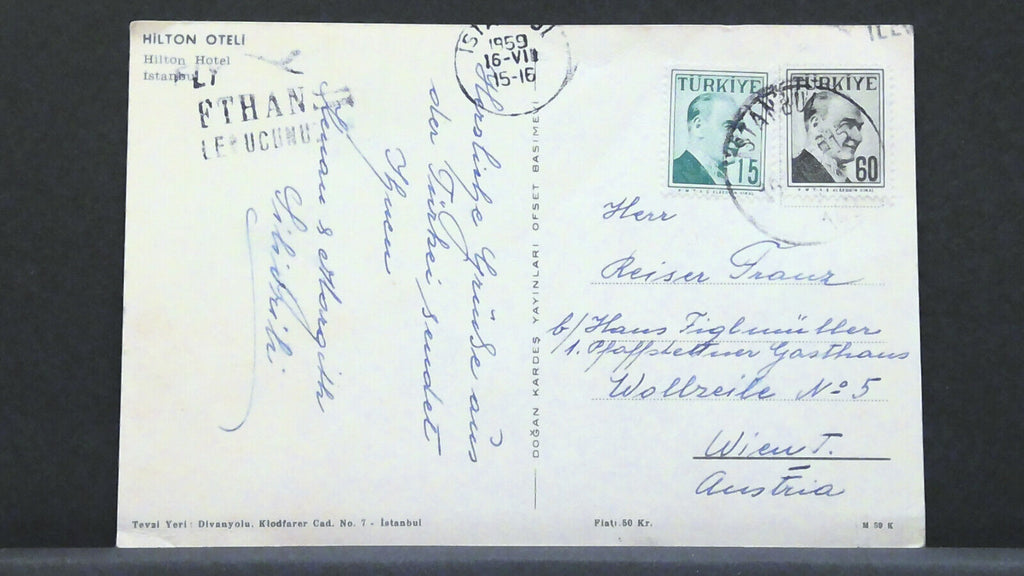 HİLTON OTELİ
Hilton Hotel
İstanbul
1959
16-VII
15-16
TÜRKİYE
15
TÜRKİYE
60
İSTANBUL
Herzliche Grüße aus
der Türkei sendet
Ihnen
& Margith
DOĞAN KARDEŞ YAYINLARI OFSET BASIMEVİ
Herr
Reiser Franz
b/Hans Figlmüller
1. Pfaffstettner Gasthaus
Wollzeile No 5
Wien I.
Austria
Tevzi Yeri: Divanyolu, Klodfarer Cad. No. 7 - İstanbul
Fiatı 50 Kr.
M 59 K